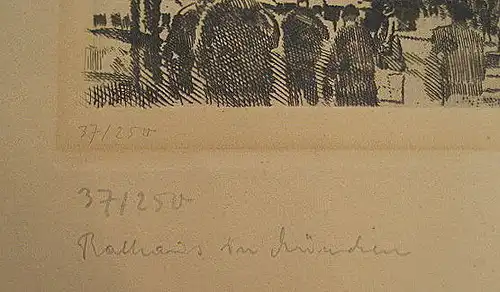 37/250
37/250
Rathaus in München